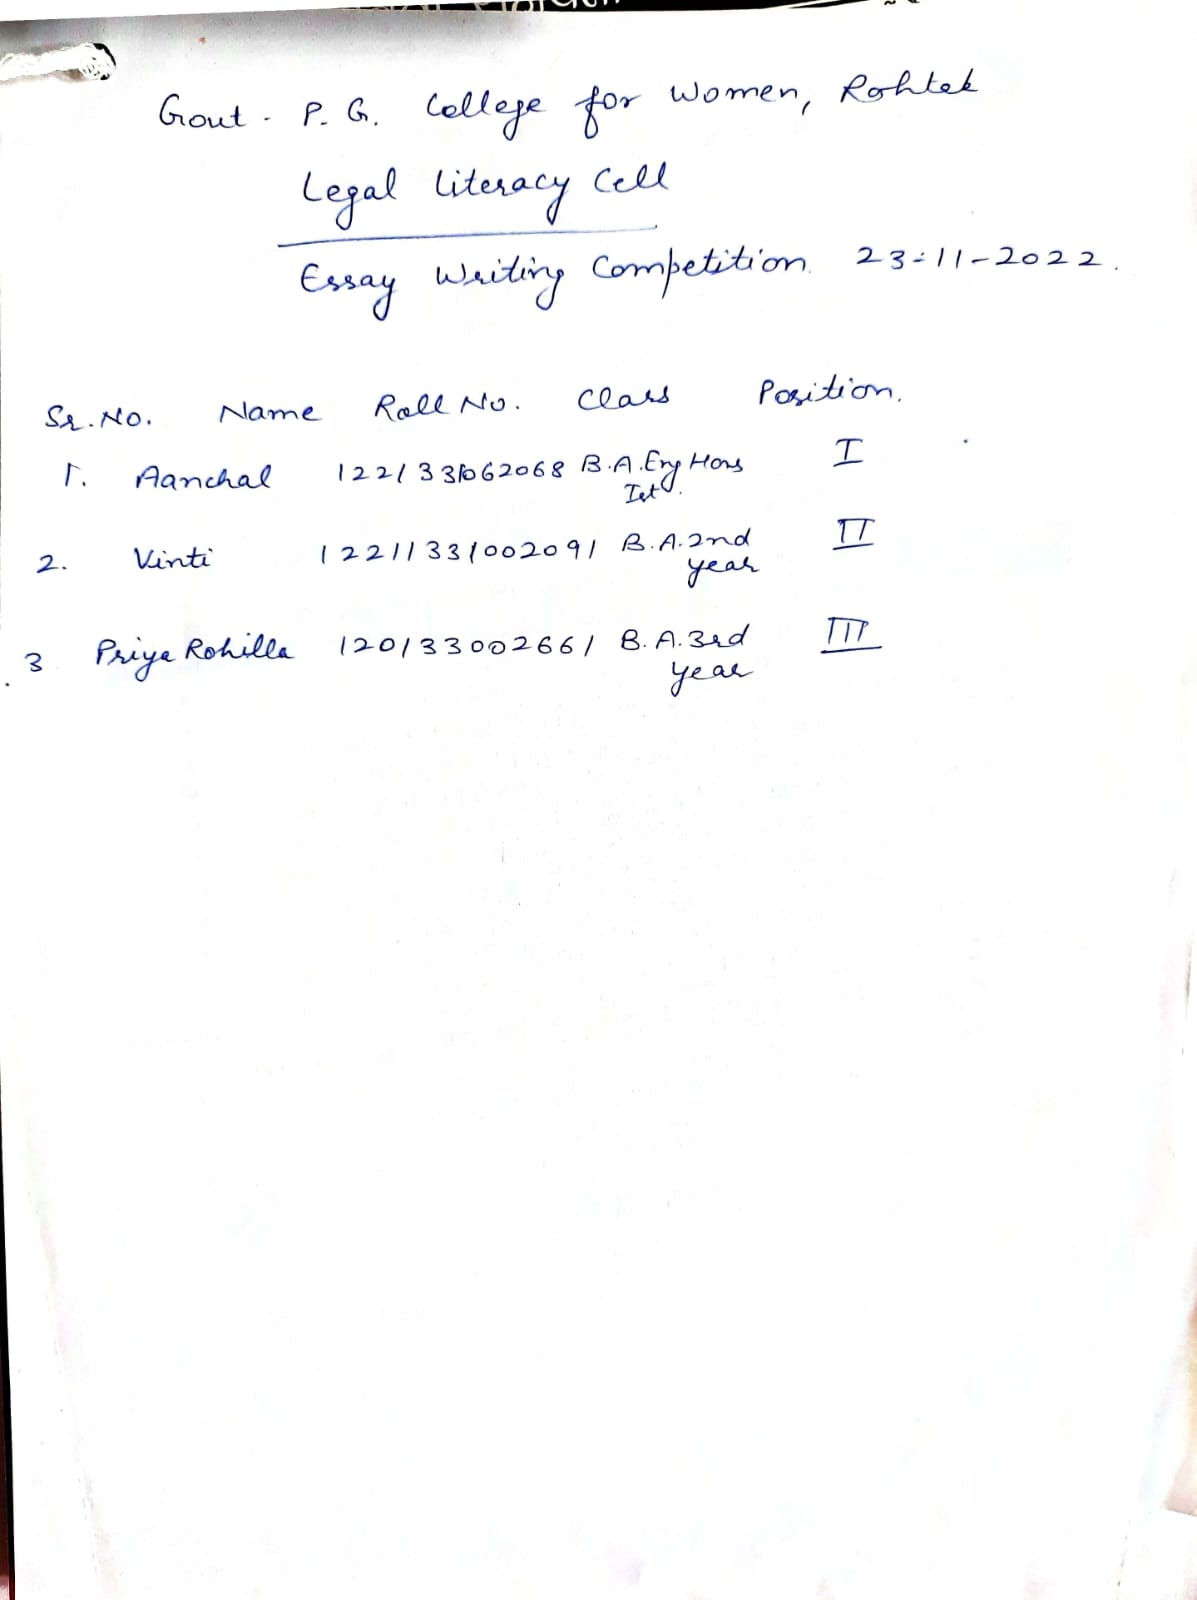 Govt. P. G. College for Women, Rohtak
Legal Literacy Cell
Essay Writing Competition 23-11-2022.
Sr. No. Name Roll No. Class Position.
1. Aanchal B.A. Eng Hons I
Ist.
2. Vinti 12211331002091 B.A. 2nd II
year
3 Priya Rohilla 120133002661 B.A. 3rd III
year